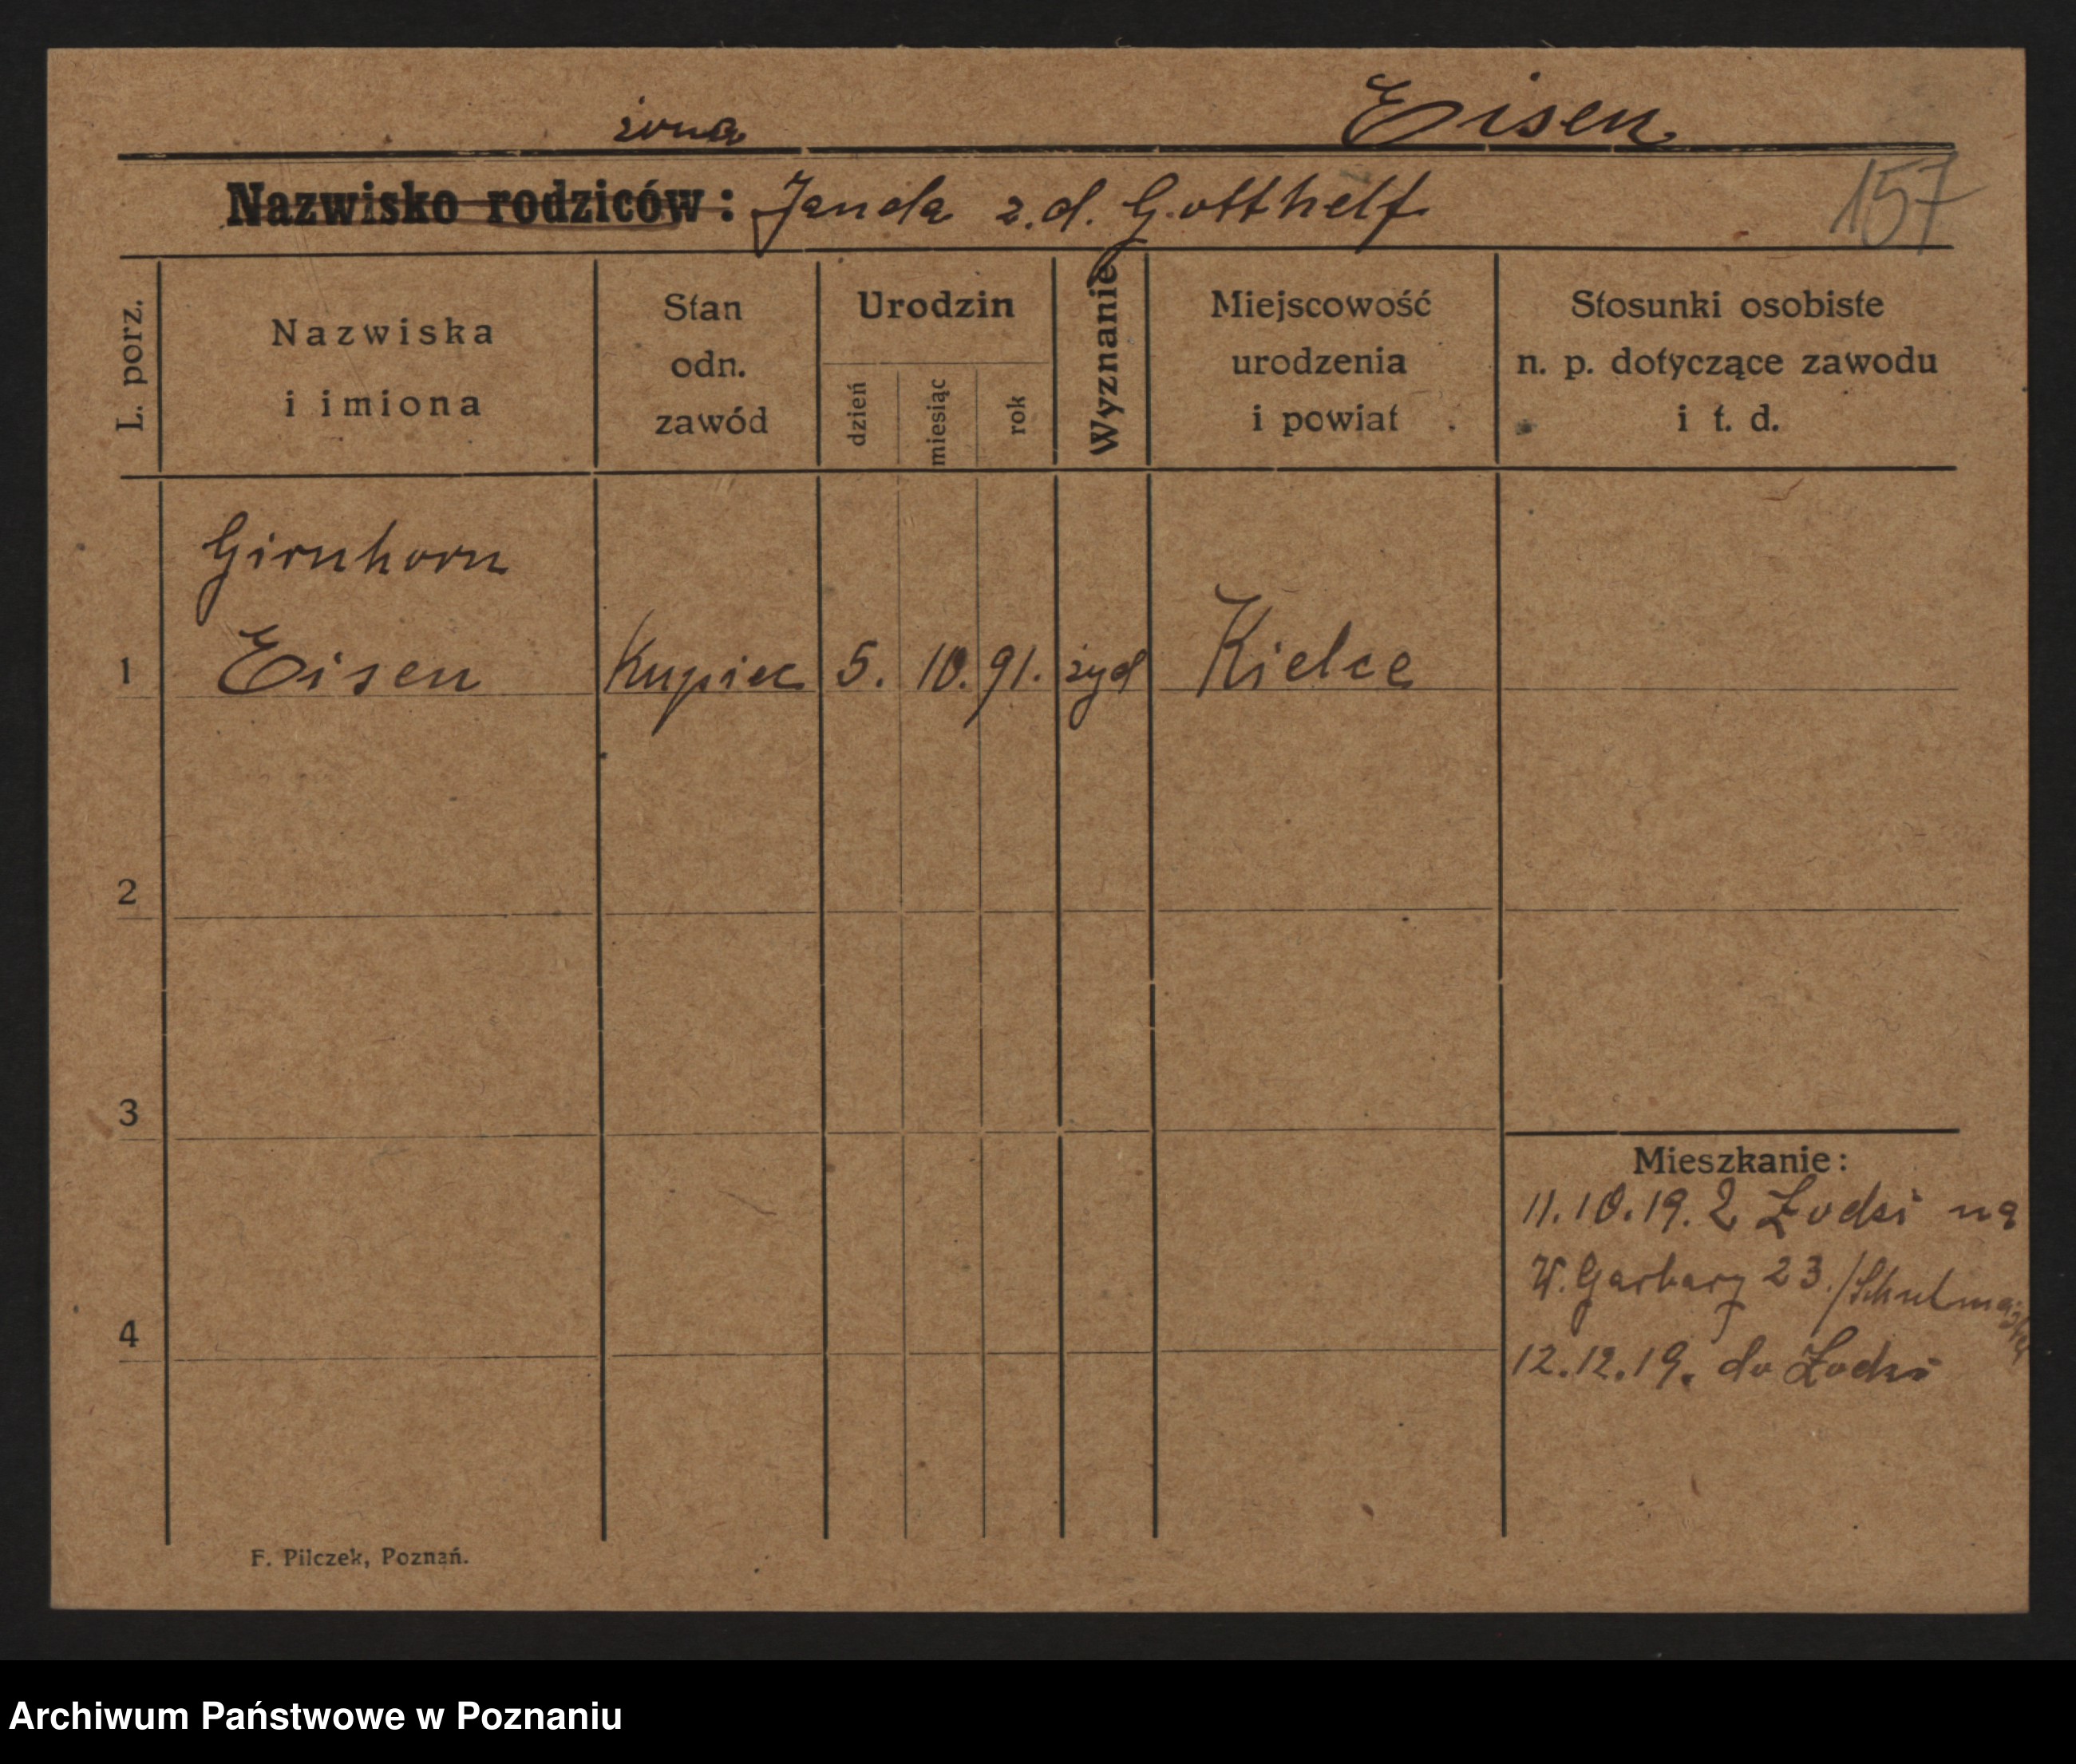 żona Eisen
Nazwisko rodziców: Janda z.d. Gotthelf 157
L. porz.
Nazwiska
i imiona
Stan
odn.
zawód
Urodzin
dzień
miesiąc
rok
Wyznanie
Miejscowość
urodzenia
i powiat
Stosunki osobiste
n. p. dotyczące zawodu
i t. d.
Girnhorn
1 Eisen Kupiec 5. 10. 91. żyd Kielce
2
3
4
Mieszkanie:
11.10.19. Z Łodzi na
W. Garbary 23
12.12.19. do Łodzi
F. Pilczek, Poznań.
Archiwum Państwowe w Poznaniu